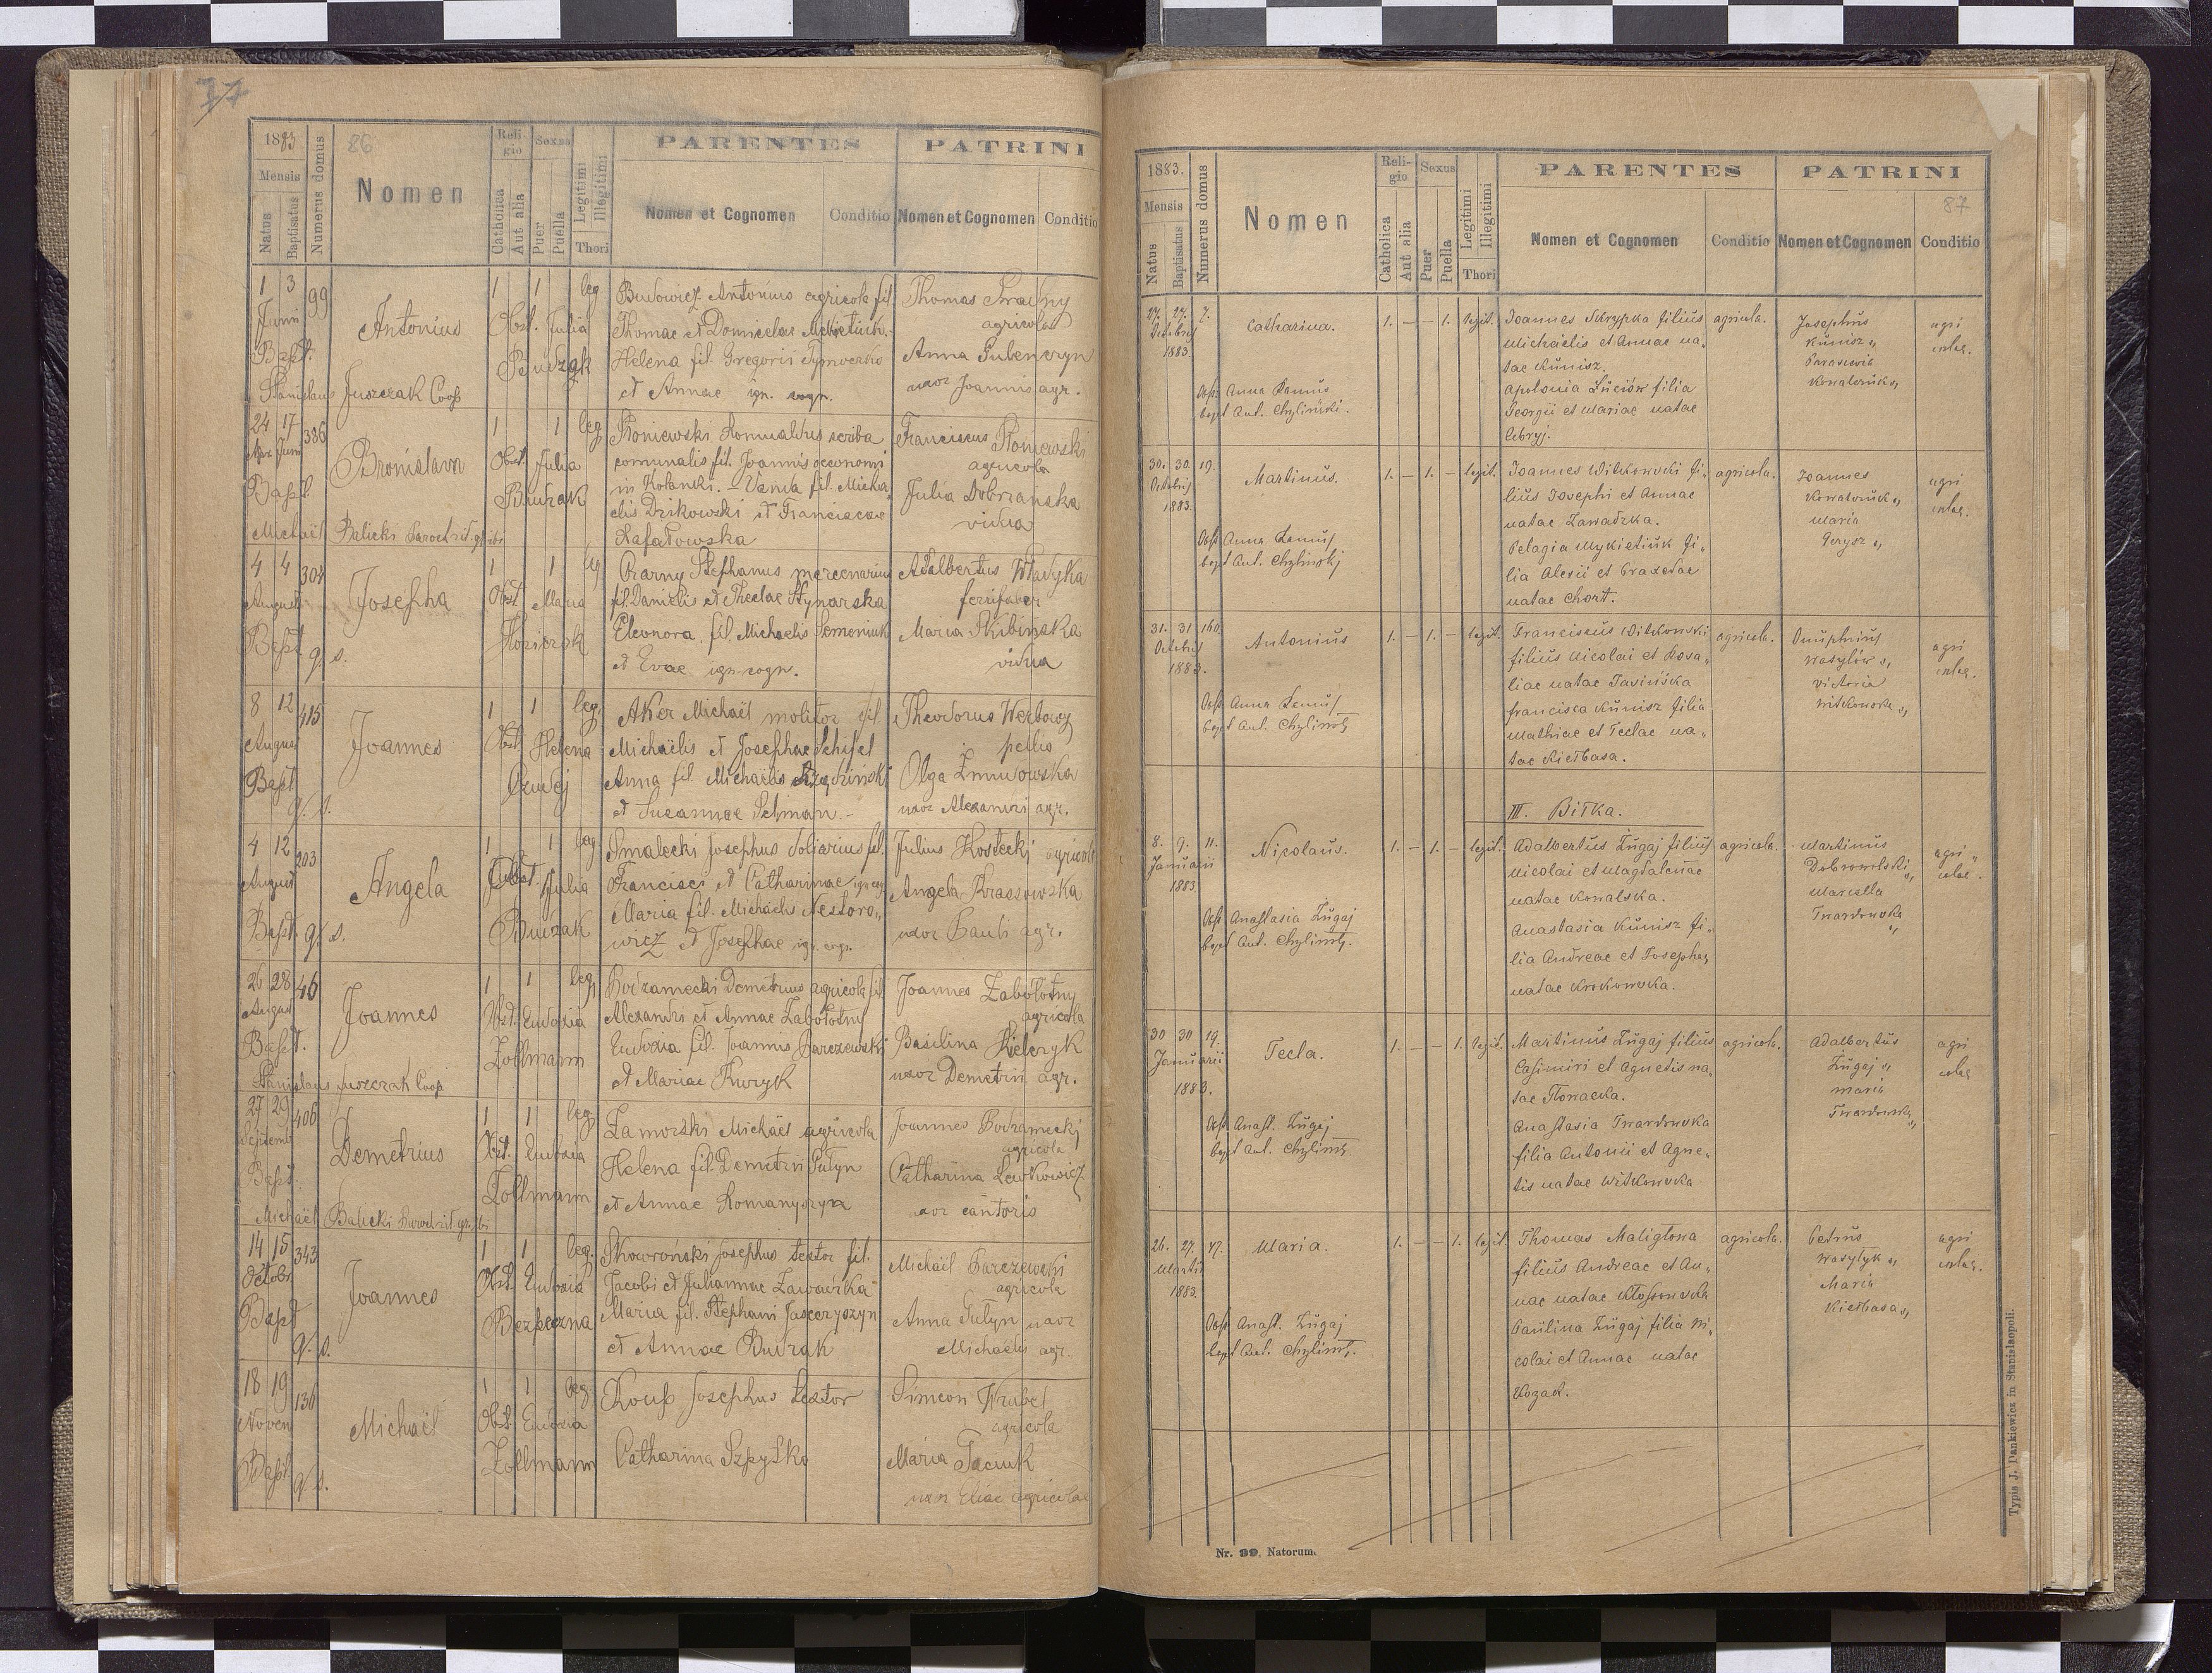 77
1883
86
Mensis
Natus
Baptisatus
Numerus domus
Nomen
Religio
Catholica
Aut alia
Sexus
Puer
Puella
Legitimi
Illegitimi
Thori
PARENTES
Nomen et Cognomen
Conditio
PATRINI
Nomen et Cognomen
Conditio
1 3 99 1 1 leg
Juni
Antonius
Obst. Julia
Budzak
Bapt.
Stanislaus Juszczak Coop
Budowicz Antonius agricola fil.
Thomae et Domicelae
Helena fil. Gregorii Tymoczko
et Annae ign. cogn.
Thomas
agricola
Anna
uxor Joannis agr.
24 17 386 1 1 leg
Juni
Bronislava
Obst. Julia
Budzak
Bapt.
Michaël Balicki
Romualdus scriba
comunalis fil. Joannis oeconomi
in Vanda fil. Micha
elis Dzikowski et Franciscae
Rafałowska
Franciscus
agricola
Julia Dobrzańska
vidua
4 4 304 1 1 leg
August
Josepha
Obst. Maria
Bapt. q. s.
Czarny Stephanus mercenarius
fil. Danielis et Theclae
Eleonora fil. Michaelis Semeniuk
et Evae ign. cogn.
Adalbertus Władyka
Maria Skibińska
vidua
8 12 415 1 1 leg.
August
Joannes
Obst. Helena
Bapt
q. s.
Aker Michaël molitor fil.
Michaëlis et Josephae Schifel
Anna fil. Michaëlis
et Susannae Selman.
Theodorus Werbowy
pellio
Olga Żmudowska
uxor Alexandri agr.
4 12 203 1 1 leg
August
Angela
Obst. Julia
Budzak
Bapt. q. s.
Smalecki Josephus doliarius fil.
Francisci et Catharinae ign. cog.
Maria fil. Michaelis Nestoro„
wicz et Josephae ign. cogn.
Julius Kostecki agricola
Angela Krassowska
uxor Pauli agr.
26 28 46 1 1 leg
August
Joannes
Obst. Eudoxia
Zollmann
Bapt.
Stanislaus Juszczak Coop
Demetrius agricola fil
Alexandri et Annae Zabołotny
Eudoxia fil. Joannis Barczewski
et Mariae
Joannes Zabołotny
agricola
Basilina
uxor Demetrii agr.
27 29 406 1 1 leg
Septemb
Demetrius
Obst. Eudoxia
Zollmann
Bapt.
Michaël Balicki
Zamorski Michaël agricola
Helena fil. Demetrii Hułyn
et Annae Romanyszyn
Joannes
agricola
Catharina Lewkowicz
uxor cantoris
14 15 343 1 1 leg.
Octobr
Joannes
Obst. Eudoxia
Bezpeczna
Bapt
q. s.
Skowroński Josephus textor fil.
Jacobi et Juliannae
Maria fil. Stephani
et Annae Budzak
Michaël Barczewski
agricola
Anna Hułyn uxor
Michaëlis agr.
18 19 136 1 1 leg.
Novem
Michaël
Obst. Eudoxia
Zollmann
Bapt.
q. s.
Josephus textor
Catharina
Simeon Wrubel
agricola
Maria Taciuk
uxor Eliae agricolae
1883.
Mensis
Natus
Baptisatus
Numerus domus
Nomen
Religio
Catholica
Aut alia
Sexus
Puer
Puella
Legitimi
Illegitimi
Thori
PARENTES
Nomen et Cognomen
Conditio
PATRINI
87
Nomen et Cognomen
Conditio
27. 27. 7.
Octobris
1883.
Catharina. 1. — — 1. legit.
Obst. Anna Kamuś
bapt Ant. Chyliński.
Joannes Skrypka filius
Michaëlis et Annae na„
tae Kunisz.
Apolonia Luciów filia
Georgii et Mariae natae
Cebryj.
agricola.
Josephus
Kunisz „
Parasevia
Kowalczuk „
agri
colae.
30. 30. 19.
Octobris
1883.
Martinus. 1. — 1. — legit.
Obst. Anna
bapt Ant. Chyliński
Joannes Witkowski fi„
lius Josephi et Annae
natae Zawadzka.
Pelagia Mykietiuk fi„
lia Alexii et Praxedae
natae Chort.
agricola.
Joannes
Kowalczuk „
Maria
Gerysz „
agri
colae.
31. 31 160.
Octobris
1883.
Antonius 1. — 1. — legit.
Obst. Anna
bapt Ant.
Franciscus Witkowski
filius Nicolai et Rosa„
liae natae Jasińska
Francisca Kunisz filia
Mathiae et Teclae na„
tae Kiełbasa.
agricola.
Onuphrius
Wasylów „
Victoria
Witkowska „
agri
colae.
III. Biłka.
8. 9. 11.
Januarii
1883
Nicolaus. 1. — 1. — legit.
Obst Anastasia Żugaj
bapt Ant.
Adalbertus Żugaj filius
Nicolai et Magdalenae
natae Kowalska.
Anastasia Kunisz fi„
lia Andreae et Josephae
natae Krokowska.
agricola.
Martinus
Dobrowolski „
Marcella
Twardowska
„
agri„
colae.
30 30 19.
Januarii
1883.
Tecla. 1. — — 1. legit.
Obst Anast. Żugaj
bapt Ant.
Martinus Żugaj filius
Casimiri et Agnetis na„
tae Słowacka.
Anastasia Twardowska
filia Antonii et Agne„
tis natae Witkowska
agricola.
Adalbertus
Żugaj „
Maria
Twardowska „
agri
colae
26. 27. 47.
Martii
1883.
Maria. 1. — — 1. legit.
Obst Anast. Żugaj
bapt Ant.
Thomas Maliglowa
filius Andreae et An„
nae natae Kłossowska
Paulina Żugaj filia Ni„
colai et Annae natae
Kozak.
agricola.
Petrus
Wasyłyk „
Maria
Kiełbasa „
agri
colae.
Nr. 99. Natorum.
Typis J. Dankiewicz in Stanislaopoli.